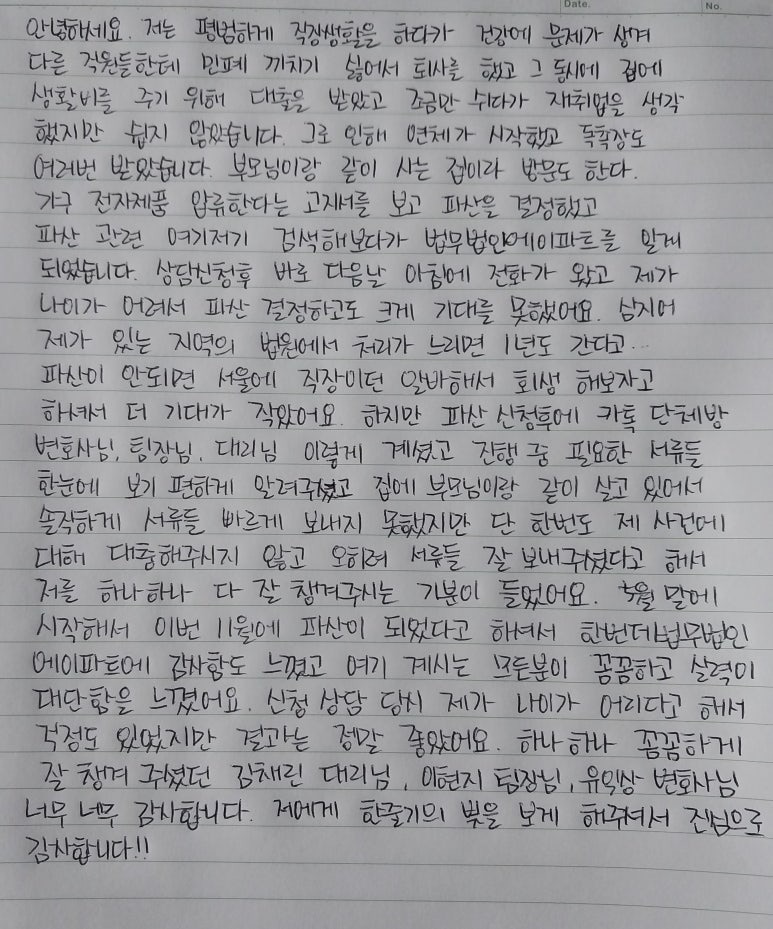 Date.
No.
안녕하세요. 저는 평범하게 직장생활을 하다가 건강에 문제가 생겨
다른 직원들한테 민폐 끼치기 싫어서 퇴사를 했고 그 동시에 집에
생활비를 주기 위해 대출을 받았고 조금만 쉬다가 재취업을 생각
했지만 쉽지 않았습니다. 그로 인해 연체가 시작했고 독촉장도
여러번 받았습니다. 부모님이랑 같이 사는 집이라 방문도 한다.
가구 전자제품 압류한다는 고지서를 보고 파산을 결정했고
파산 관련 여기저기 검색해보다가 법무법인에이파트를 알게
되었습니다. 상담신청후 바로 다음날 아침에 전화가 왔고 제가
나이가 어려서 파산 결정하고도 크게 기대를 못했어요. 심지어
제가 있는 지역의 법원에서 처리가 느리면 1년도 간다고...
파산이 안되면 서울에 직장이던 알바해서 회생 해보자고
하셔서 더 기대가 작았어요. 하지만 파산 신청후에 카톡 단체방
변호사님, 팀장님, 대리님 이렇게 계셨고 진행 중 필요한 서류들
한눈에 보기 편하게 알려주셨고 집에 부모님이랑 같이 살고 있어서
솔직하게 서류들 빠르게 보내지 못했지만 단 한번도 제 사건에
대해 대충해주시지 않고 오히려 서류들 잘 보내주셨다고 해서
저를 하나하나 다 잘 챙겨주시는 기분이 들었어요. 5월 말에
시작해서 이번 11월에 파산이 되었다고 하셔서 한번더 법무법인
에이파트에 감사함도 느꼈고 여기 계시는 모든분이 꼼꼼하고 실력이
대단함을 느꼈어요. 신청 상담 당시 제가 나이가 어리다고 해서
걱정도 있었지만 결과는 정말 좋았어요. 하나하나 꼼꼼하게
잘 챙겨 주셨던 김채린 대리님, 이현지 팀장님, 유익상 변호사님
너무 너무 감사합니다. 저에게 한줄기의 빛을 보게 해주셔서 진심으로
감사합니다!!